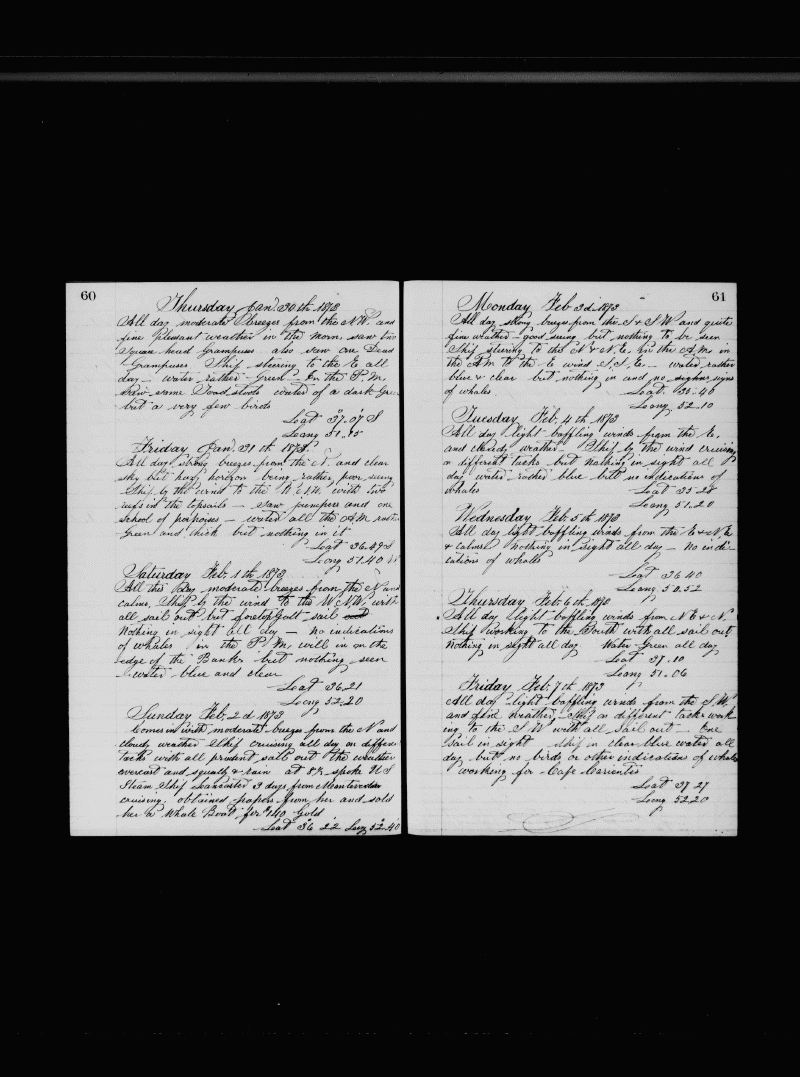 60
Thursday Jan'y 30th 1873
All day moderate Breezes from the NW. and
fine pleasant weather in the morn, saw two
Square head Grampuses also saw one Dead
Grampuses Ship steering to the E all
day — water rather Green — In the P.M.
saw some Dead water of a dark Green
but a very few birds
Leat 37.07 S
Leong 51.15
Friday Jan'y 31 th 1873.
All day strong breezes from the N. and clear
sky but hazy horizon being rather poor seeing
Ship by the wind to the with two
reefs in the topsails — saw jumpers and one
School of porpoises — water all the A.M. rather
Green and thick but nothing in it
Leat 36.49 S
Leong 51.40
Saturday Feb. 1 th 1873
All this Day moderate breezes from the N and
calms, Ship by the wind to the W NW. with
all sail out but foretopGalt sail
Nothing in sight all day — no indications
of whales in the P.M. will in on the
edge of the Bank but nothing seen
water blue and clear
Leat 36.21
Leong 52.20
Sunday Feb. 2 d 1873
Comes in with moderate breezes from the N and
cloudy weather Ship cruising all day on different
tacks with all prudent sail out the weather
overcast and squally & rain at 8 spoke U S
Steam Ship Lancaster 3 days from Montevideo
cruising. obtained papers from her and sold
her a Whale Boat for $140 Gold
Leat 36 22 Long 52.40
61
Moonday Feb 3d. 1873
All day strong breezes from the S & SW and quite
fine weather — good seeing but nothing to be seen
Ship steering to the N & N.E. in the A.M. in
the to the E wind S.S.E. — water rather
blue & clear but nothing in and no signs
of whales Leat. 35.46
Leong 52.10
Tuesday Feb, 4 th 1873
All day light baffling winds from the E,
and cloudy weather. Ship by the wind cruising
on different tacks but Nothing in sight all
day water rather blue but no indications of
whales Leat 35.28
Leong 51.20
Wednesday Feb 5 th 1873
All day light baffling winds from the E & N.E
& calms Nothing in sight all day — no indi-
cations of whales
Leat 36.40
Leong 50.52
Thursday Feb. 6 th
All day light baffling winds from N.E & N.
Ship working to the South with all sail out
Nothing in sight all day Water Green all day
Leat 37.10
Leong 51.06
Friday Feb. 7 th 1873
All day light baffling winds from the S.W.
and fine weather, Ship on different tacks work
ing to the S W with all Sail out — One
Sail in sight ship in clear blue water all
day but no birds or other indication of whales
working for Cape
Leat 37 27
Leong 52.20